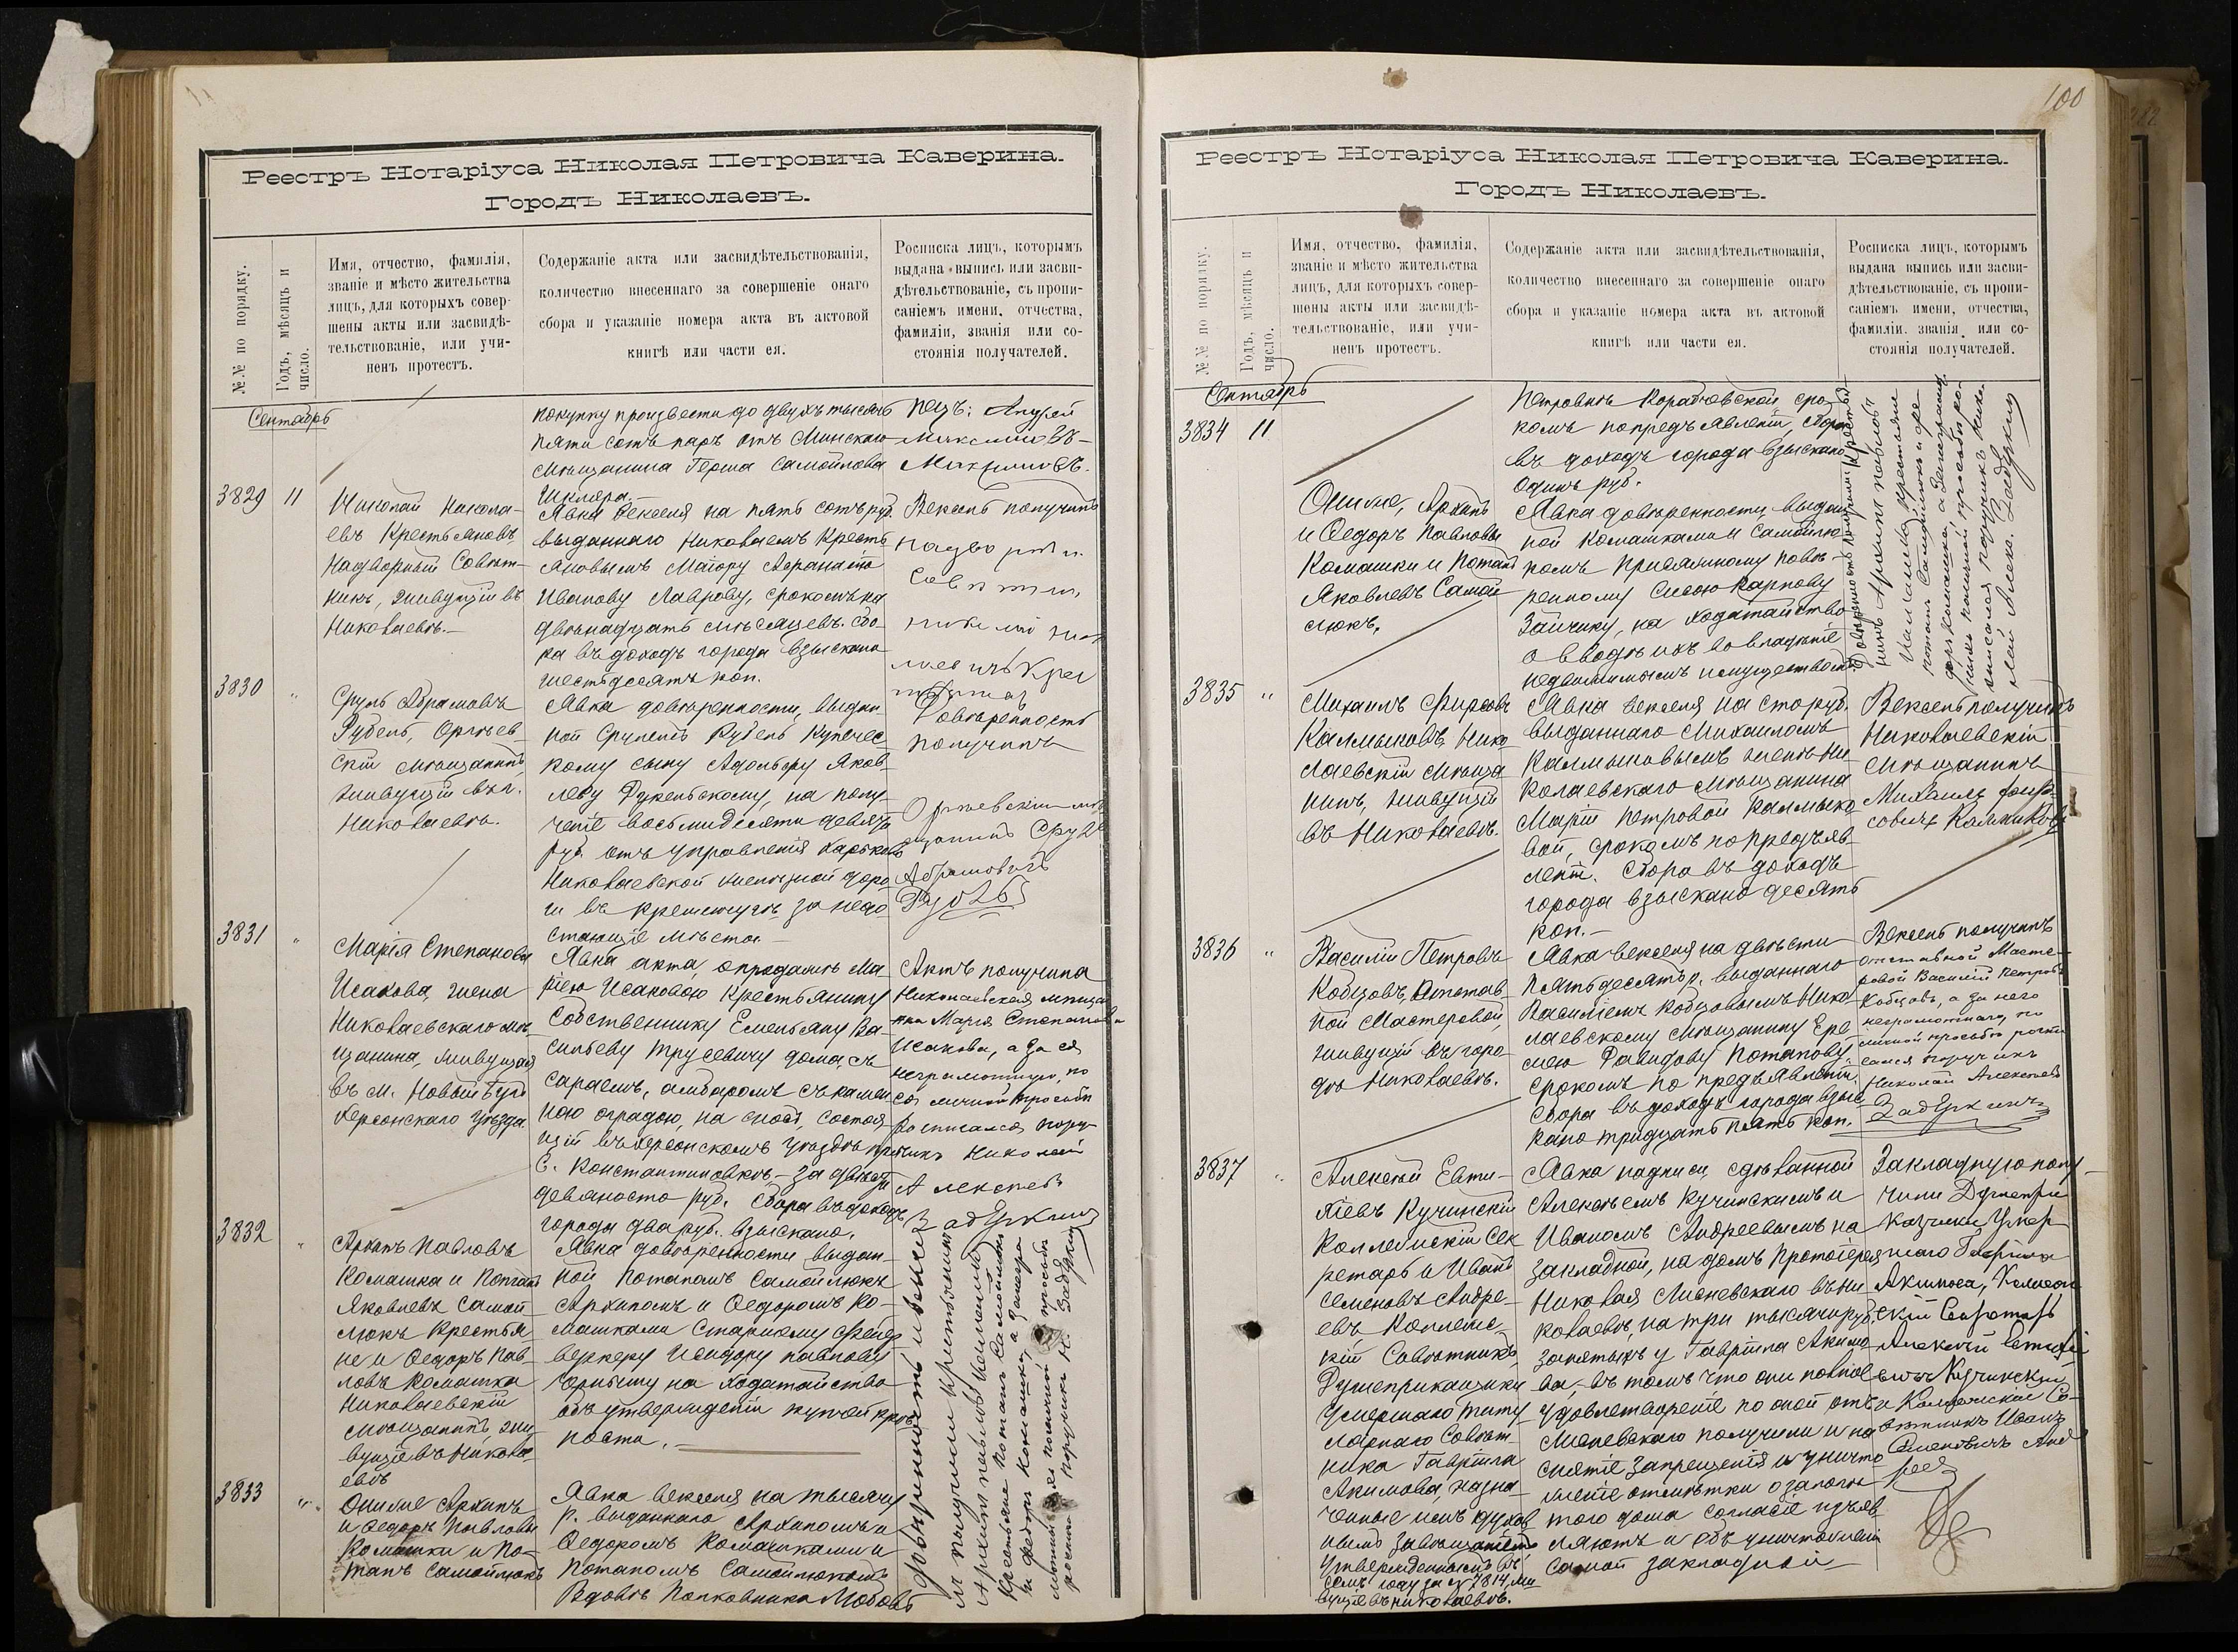 Реестръ Нотаріуса Николая Петровича Каверина.
Городъ Николаевъ.
№.№ по порядку.
Годъ, мѣсяцъ и
число.
Имя, отчество, фамилія,
званіе и мѣсто жительства
лицъ, для которыхъ совер-
шены акты или засвидѣ-
тельствованіе, или учи-
ненъ протестъ.
Содержаніе акта или засвидѣтельствованія,
количество внесеннаго за совершеніе онаго
сбора и указаніе номера акта въ актовой
книгѣ или части ея.
Росписка лицъ, которымъ
выдана выпись или засви-
дѣтельствованіе, съ пропи-
саніемъ имени, отчества,
фамиліи, званія или со-
стоянія получателей.
Сентябрь
покупку произвести до двухъ тысячъ
пяти сотъ паръ отъ Минскаго
мѣщанина Герша Самойлова
Шкляра.
3829 11
Николай Никола-
евъ Крестьяновъ,
Надворный Совѣт-
никъ, живущій въ
Николаевѣ.—
Явка векселя на пять сотъ руб.
выданнаго Николаемъ Кресть
яновымъ Маіору Аѳанасію
Иванову Лаврову, срокомъ на
двѣнадцать мѣсяцевъ. сбо-
ра въ доходъ города взыскано
шестьдесятъ коп.
Вексель получилъ
надворный
3830 "
Сруль Абрамовъ
Рубель, Оргѣев-
скій мѣщанинъ,
живущій въ г.
Николаевѣ.
Явка довѣренности, выдан-
ной Срулемъ Рубель Купечес-
кому сыну Адольфу Яков-
леву Дукельскому, на полу-
ченіе восьмидесяти девяти
руб. отъ Управленія Харьково
Николаевской желѣзной доро-
ги въ Кременчугѣ за недо-
стающіе мѣста.—
Довѣренность
получилъ
Оргѣевскій мѣ
щанинъ Сруль
Абрамовичъ
3831 "
Марія Степанова
Исакова, жена
Николаевскаго мѣ-
щанина, живущая
въ м. Новый Бугъ
Херсонскаго уѣзда
Явка акта, о продажѣ Ма-
ріею Исаковою Крестьянину
Собственнику Емельяну Ва-
сильеву Трусевичу дома, съ
сараемъ, амбаромъ съ камен
ною оградою, на сносъ, состоя-
щій въ Херсонскомъ уѣздѣ при
с. Константиновкѣ,— за двѣсти
девяносто руб. Сбора въ доходъ
города два руб. взыскано.
Актъ получила
Николаевская мѣщан
ка Марія Степанова
Исакова, а за ея
неграмотную, по
ея личной просьбѣ
росписался пору-
чикъ Николай
Алексѣевъ
Задеркинъ
3832 "
Архипъ Павловъ
Комашка и Потапъ
Яковлевъ Самой
люкъ Крестья-
не и Ѳедоръ Пав-
ловъ Комашка
Николаевскій
мѣщанинъ, жи-
вущіе въ Никола-
евѣ
Явка довѣренности выдан-
ной Потапомъ Самойлюкъ
Архипомъ и Ѳедоромъ Ко-
машками Старшему Фейер-
веркеру Исидору Павлову
Чернышу на ходатайство
объ утвержденіи купчей крѣ
пости.—
3833 "
Они же Архипъ
и Ѳедоръ Павловы
Комашки и По-
тапъ Самойлюкъ
Явка векселя на тысячу
р. выданнаго Архипомъ и
Ѳедоромъ Комашками и
Потапомъ Самойлюкомъ
Вдовѣ Полковника Любовъ
Реестръ Нотаріуса Николая Петровича Каверина.
Городъ Николаевъ.
100
№.№ по порядку.
Годъ, мѣсяцъ и
число.
Имя, отчество, фамилія,
званіе и мѣсто жительства
лицъ, для которыхъ совер-
шены акты или засвидѣ-
тельствованіе, или учи-
ненъ протестъ.
Содержаніе акта или засвидѣтельствованія,
количество внесеннаго за совершеніе онаго
сбора и указаніе номера акта въ актовой
книгѣ или части ея.
Росписка лицъ, которымъ
выдана выпись или засви-
дѣтельствованіе, съ пропи-
саніемъ имени, отчества,
фамиліи, званія или со-
стоянія получателей.
Сентябрь
Петровнѣ Корабчевской сро-
комъ по предъявленіи, сбора
въ доходъ города взыскано
одинъ руб.
3834 11
Они же, Архипъ
и Ѳедоръ Павловы
Комашки и Потапъ
Яковлевъ Самой
люкъ,
Явка довѣренности выдан
ной Комашками и Самойлю-
комъ Присяжному повѣ-
ренному Сысою Карпову
Зайчику, на ходатайство
о вводѣ ихъ во владѣніе
недвижимымъ имуществомъ
3835 "
Михаилъ Фирсовъ
Калмыковъ, Нико
лаевскій мѣща
нинъ, живущій
въ Николаевѣ.
Явка векселя на сто руб.
выданнаго Михаиломъ
Калмыковымъ женѣ Ни-
колаевскаго мѣщанина
Маріи Петровой Калмыко
вой, срокомъ по предъяв-
леніи. Сбора въ доходъ
города взыскано десять
коп.—
Вексель получилъ
Николаевскій
мѣщанинъ
Михаилъ Фир-
совичъ Калмиковъ
3836 "
Василій Петровъ
Кобцовъ, Отстав-
ной Мастеровой,
живущій въ горо-
дѣ Николаевѣ.
Явка векселя на двѣсти
пятьдесятъ р. выданнаго
Василіемъ Кобцовымъ Нико-
лаевскому мѣщанину Ере-
мею Давидову Потапову,
срокомъ по предъявленіи.
Сбора въ доходъ города взыс-
кано тридцать пять коп.
Вексель получилъ
отставной Масте-
ровой Василій Петровъ
Кобцовъ, а за него
неграмотнаго, по
личной просьбѣ роспи
сался поручикъ
Николай Алексѣевъ
Задеркинъ
3837 "
Алексѣй Евти-
ѣіевъ Кучинскій
Коллежскій Сек
ретарь и Иванъ
Семеновъ Андре-
евъ Коллежс-
кій Совѣтникъ,
Душеприкащики
умершаго Титу
лярнаго Совѣт-
ника Гавріила
Акимова, назна
ченные имъ духов
нымъ завѣщаніемъ
утвержденнымъ въ
семъ году за № 7814, жи
вущіе въ Николаевѣ.
Явка надписи, сдѣланной
Алексѣемъ Кучинскимъ и
Иваномъ Андреевымъ на
закладной, на домъ Протоіерея
Николая Лисневскаго въ Ни
колаевѣ, на три тысячи руб.
занятыхъ у Гавріила Акимо
ва,— въ томъ что они полное
удовлетвореніе по оной отъ
Лисневскаго получили и на
снятіе запрещенія и уничто
женіе отмѣтки о залогѣ
того дома согласіе изъяв
ляютъ и объ уничтоженіи
самой закладной
Закладную полу-
чили Душепри
кащики Умер
шаго Гавріила
Акимова, Коллеж
скій Секретарь
Алексѣй
Кучинскій
и Коллежскій Со-
вѣтникъ Иванъ
Семеновичъ Анд
реевъ